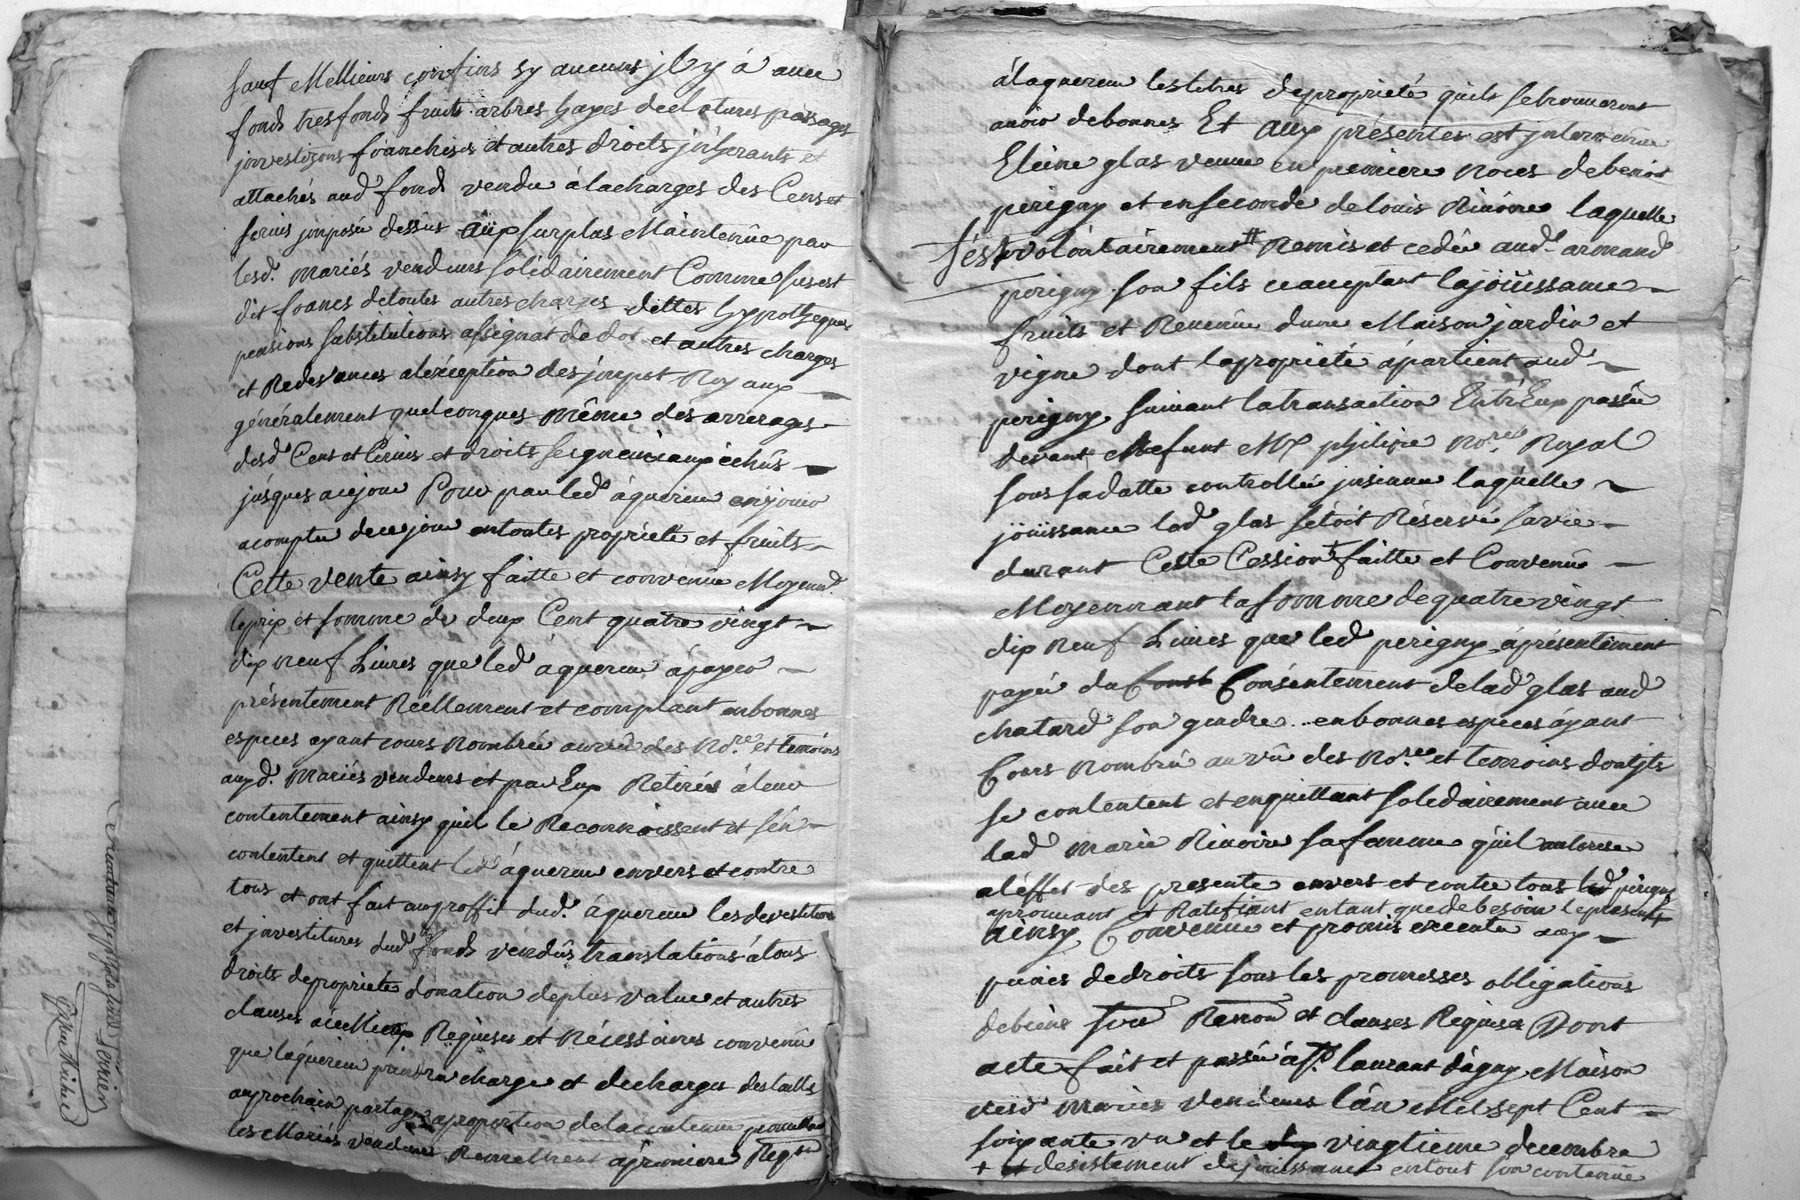 sauf Meilleurs confins sy aucuns jl y à avec
fond tresfond fruits arbres hayes de clotures passages
jnvestizons franchises et autres droits jnherants et
attachés aud. fond vendu à la charges des Cens et
servis jmposée dessus aux surplus Maintenüe par
lesd. mariés vendeurs solidairement Comme sus est
dit francs de toutes autres charges dettes hypotheques
pensions substitutions assignat de dot et autres charges
et Redevances a l'exception des jmpot Royaux
généralement quelconques même des arrerages
desd. Cens et servis et droits seigneuriaux échûs
jusques a ce jour Pour par led. àquereur en joüir
a compter de ce jour en toutes propriété et fruits
Cette vente ainsy faitte et convenüe Moyenn.
le prix et somme de deux Cent quatre vingt
dix neuf Livres que led. àquereur à payer
présentement Réellement et comptant en bonnes
especes ayant cours nombrée au vû des No.res et temoins
auxd. mariés vendeurs et par Eux Retirés à leur
contentement ainsy quil le Reconnoissent et s'en
contentent et quittent led. àquereur envers et contre
tous et ont fait au proffit dud. àquereur les devestitures
et jnvestitures dud. fonds vendûs translations à tous
droits de propriete donation de plus value et autres
clauses Requises et Nécessaires convenu
que làquereur prendra charge et décharges des taille
au prochain partage a proportion de la contenue promettant
les Mariés vendeurs Remettront à première Reqon
àlaquereur les titres de propriété quils se trouveront
avoir de bonnes Et aux présentes est jntervenue
Eleine glas veuve en premiere noces de benoit
perigny et en seconde de Louis Rivoire laquelle
s'est volontairement # Remis et cedée aud. armand
perigny son fils ceaceptant la joüissance
fruits et Revenüe dune Maison jardin et
vigne dont la propriété àpartient aud.
perigny suivant la transaction Entr'Eux passée
devant deffunt Me philipe No.re Royal
sous sa datte controllée jnsinuée laquelle
joüissance lad. glas s'étoit Réservée sa vie
durant Cette Cession + faitte et Convenüe
Moyennant la somme de quatre vingt
dix neuf Livres que led. perigny àprésentement
payée du Const Consentement de lad. glas aud.
chatard son gendre en bonnes especes àyant
Cours nombrée au vû des No.res et temoins dont jls
se contentent et enquittant solidairement avec
lad. marie Rivoire sa femme quil autorise
a l'éffet des presente envers et contre tous led. périgny
aprouvant et Ratifiant entant que de besoin le present
ainsy Convenue et promis executer aux
peines de droits sous les promesses obligations
de biens Renon et clauses Requises Dont
acte fait et passé à St. Laurant d'àgny Maison
desd. Mariés vendeurs l'an Mil sept Cent
soixante un et le dix vingtieme decembre
+ # desistement de joüissance en tout son contenüe